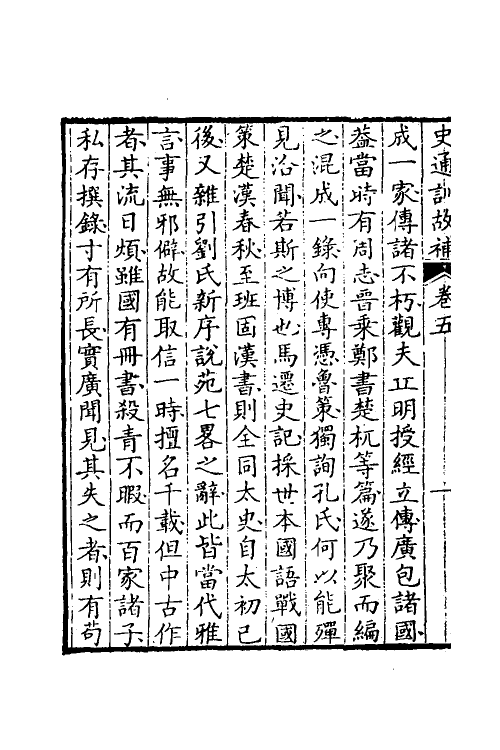 史通訓故補 卷五 一
成一家傳諸不朽觀夫丘明授經立傳廣包諸國
葢當時有周志晉乘鄭書楚杌等篇遂乃聚而編
之混成一錄向使專憑魯策獨詢孔氏何以能殫
見洽聞若斯之博也馬遷史記採世本國語戰國
策楚漢春秋至班固漢書則全同太史自太初已
後又雜引劉氏新序說苑七畧之辭此皆當代雅
言事無邪僻故能取信一時擅名千載但中古作
者其流日煩雖國有冊書殺青不暇而百家諸子
私存撰錄寸有所長實廣聞見其失之者則有苟